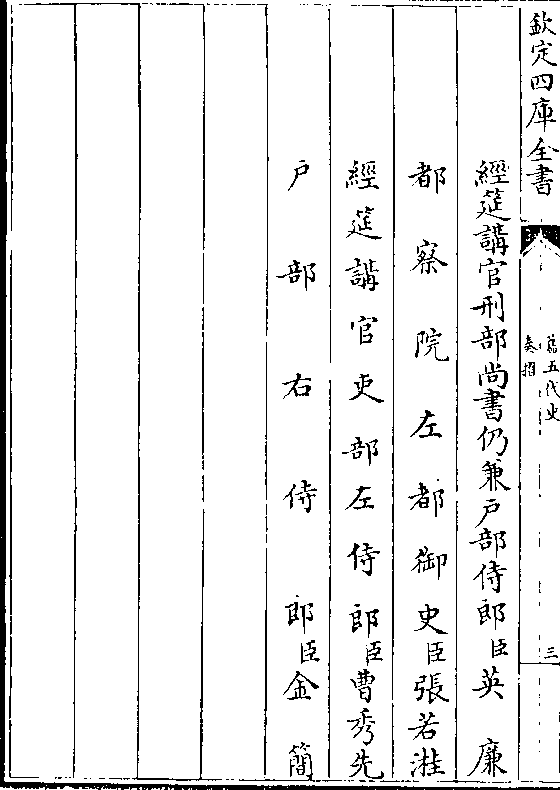 欽定四庫全書
舊五代史
奏摺
三
經筵講官刑部尚書仍兼戶部侍郎臣英廉
都察院左都御史臣張若溎
經筵講官吏部左侍郎臣曹秀先
戶部右侍郎臣金簡